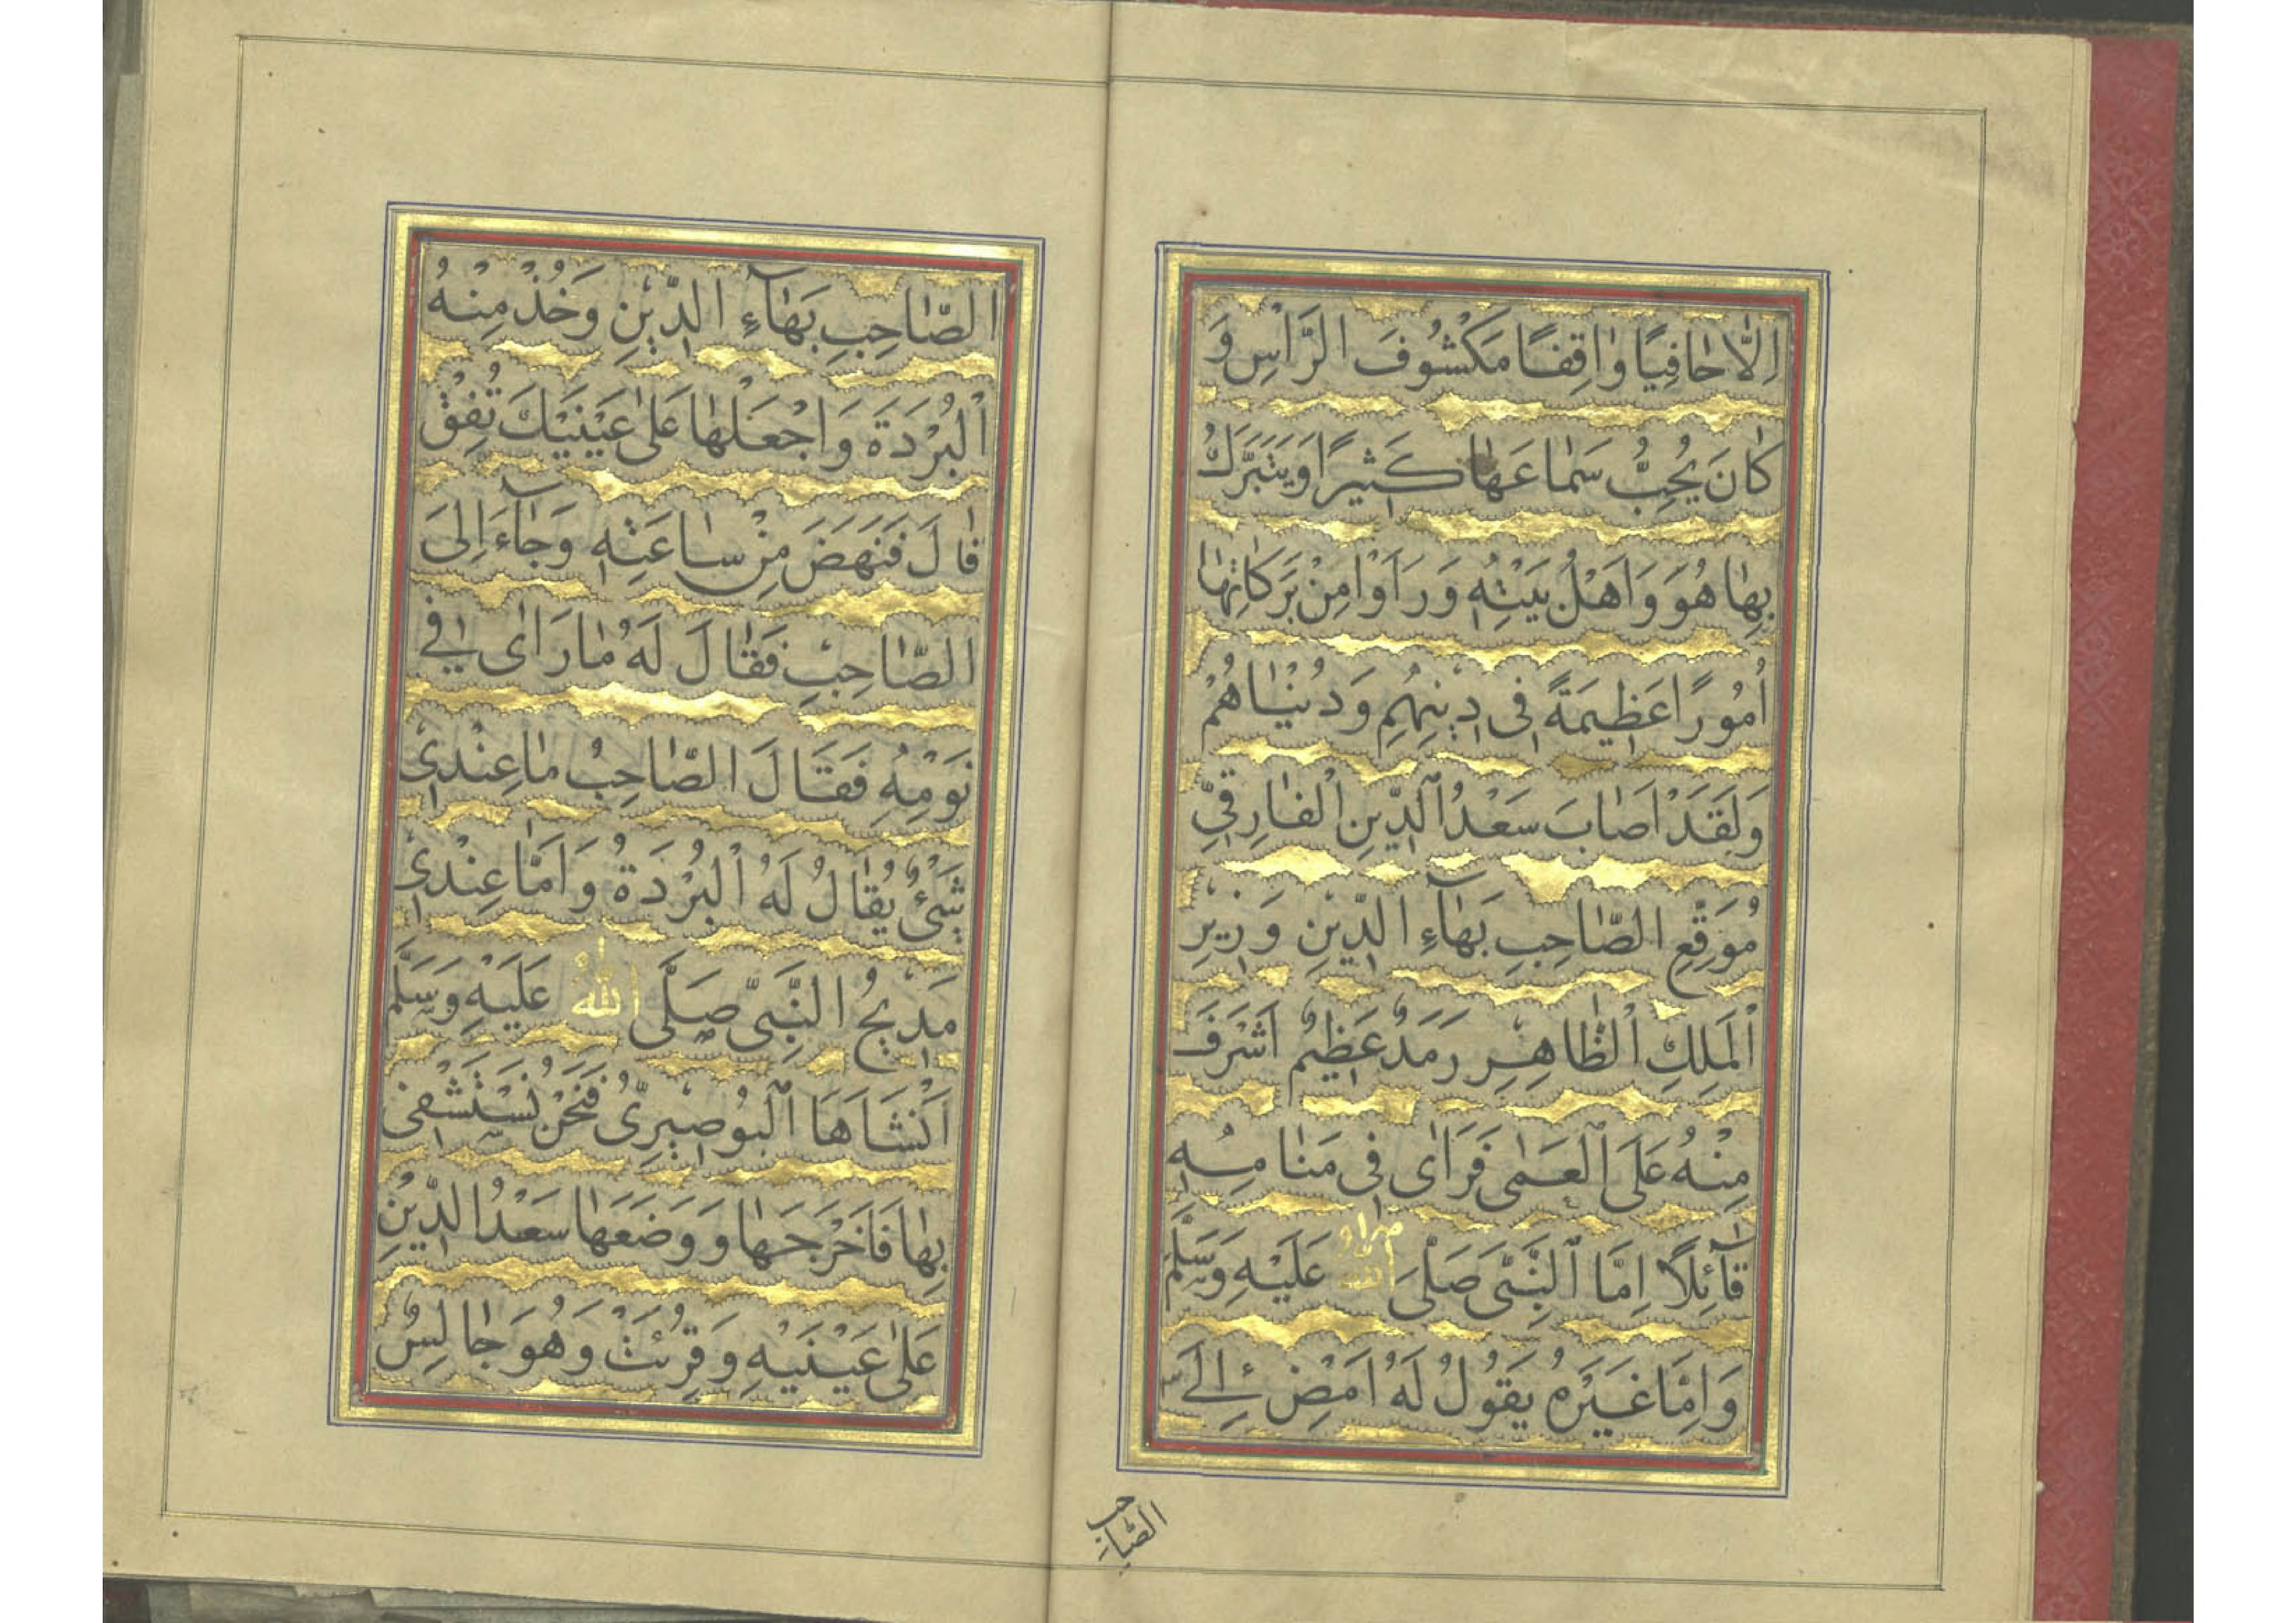 اِلّٰا حٰافِيًا وٰاقِفًا مَكْشُوفَ الرَّاْسِ وَ
كٰانَ يُحِبُّ سَمٰاعَهٰا كَثِيرًا وَيَتَبَرَّكُ
بِهٰا هُوَ وَاَهْلُ بَيْتِهِ وَرَاَوْا مِنْ بَرَكٰاتِهٰا
اُمُورًا عَظِيمَةً فِى دِينِهِمِ وَدُنْيٰاهُمْ
وَلَقَدْ اَصٰابَ سَعْدُ الدِّينِ الْفٰارِقِيّ
مُوَقِّعِ الصّٰاحِبِ بَهٰآءِ الدِّينِ وَزِيرِ
الْمَلِكِ الْظّٰاهِرِ رَمَدٌ عَظِيمٌ اَشْرَفَ
مِنْهُ عَلَى الْعَمٰى فَرَاٰى فِى مَنٰامِهِ
قٰآئِلًا اِمَّا النَّبِىَّ صَلَّى اللّٰهُ عَلَيْهِ وَسَلَّمَ
وَاِمّٰا غَيْرَهُ يَقُولُ لَهُ امْضِ اِلَى
الصّٰاحِبِ
الصّٰاحِبِ بَهٰآءِ الدِّينِ وَخُذْ مِنْهُ
الْبُرْدَةَ وَاجْعَلْهٰا عَلٰى عَيْنَيْكَ تُفِقْ
قٰالَ فَنَهَضَ مِنْ سٰاعَتِهِ وَجٰآءَ اِلَى
الصّٰاحِبِ فَقٰالَ لَهُ مٰا رَاٰى فِى
نَوْمِهِ فَقَالَ الصّٰاحِبُ مٰا عِنْدِى
شَىْءٌ يُقٰالُ لَهُ الْبُرْدَةُ وَاَمّٰا عِنْدِى
مَدِيحُ النَّبِىِّ صَلَّى اللّٰهُ عَلَيْهِ وَسَلَّمَ
اَنْشَاَهَا الْبُوصِيرِىُّ فَنَحْنُ نَسْتَشْفِى
بِهٰا فَاَخْرَجَهٰا وَوَضَعَهٰا سَعْدُ الدِّينِ
عَلٰى عَيْنَيْهِ وَقُرِئَتْ وَهُوَ جٰالِسٌ